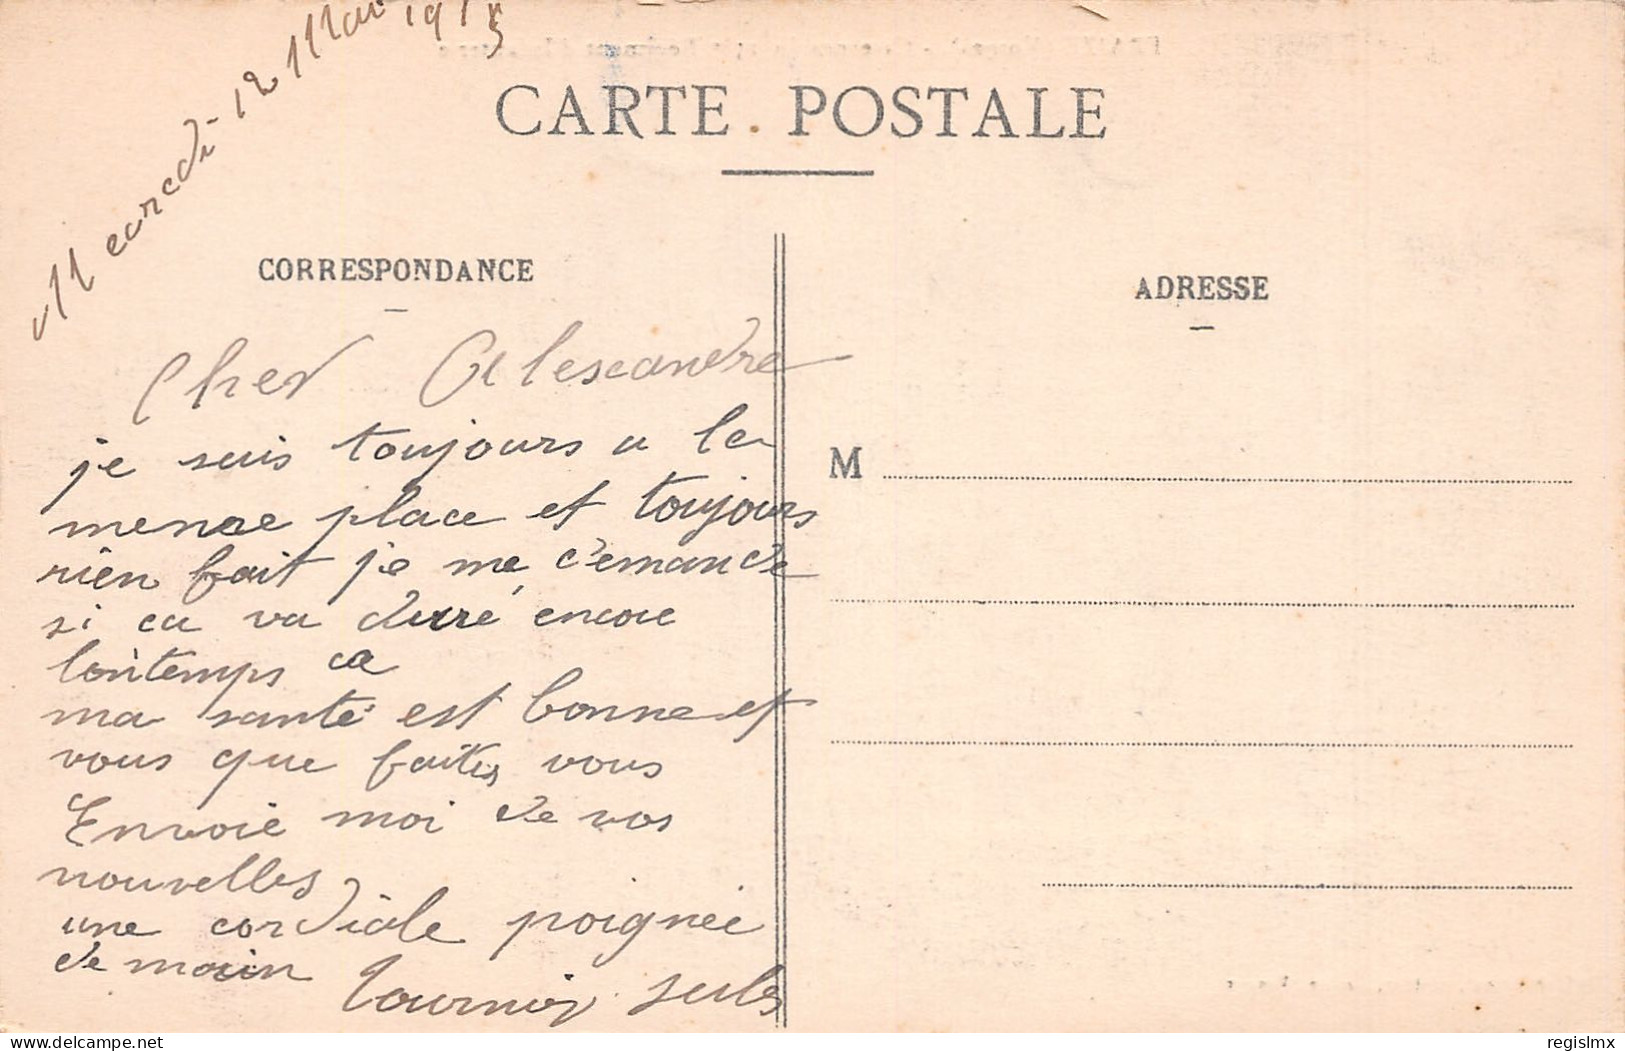 Mercredi 12 Mai 1915
CARTE POSTALE
CORRESPONDANCE
ADRESSE
Cher Alescandre
je suis toujours a la
meme place et toujours
rien fait je me demande
si ca va durré encore
lontemps ca
ma santé est bonne et
vous que faites vous
Envoie moi de vos
nouvelles
une cordiale poignée
de main
Tournier Jules
M
delcampe.net
regislmx